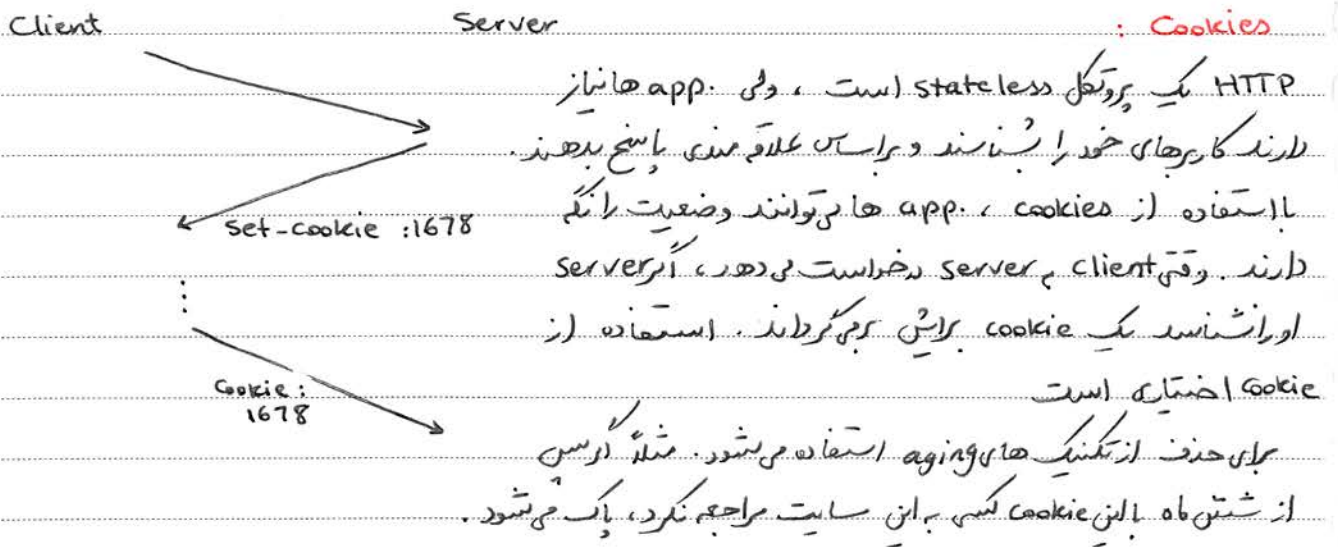 Client Server Cookies :
HTTP یک پروتکل stateless است ، ولی app. ها نیاز
دارند کاربرهای خود را بشناسند و براساس علاقه مندی پاسخ بدهند.
با استفاده از cookies ، app. ها می‌توانند وضعیت را نگه
Set-Cookie :1678
دارند. وقتی client به server درخواست می‌دهد، اگر server
او را نشناسد یک cookie برایش برمی‌گرداند. استفاده از
Cookie اختیاری است
Cookie :
1678
برای حذف از تکنیک های aging استفاده می‌شود. مثلاً اگر بیش
از شش ماه با این cookie کسی به این سایت مراجعه نکرد، پاک می‌شود.